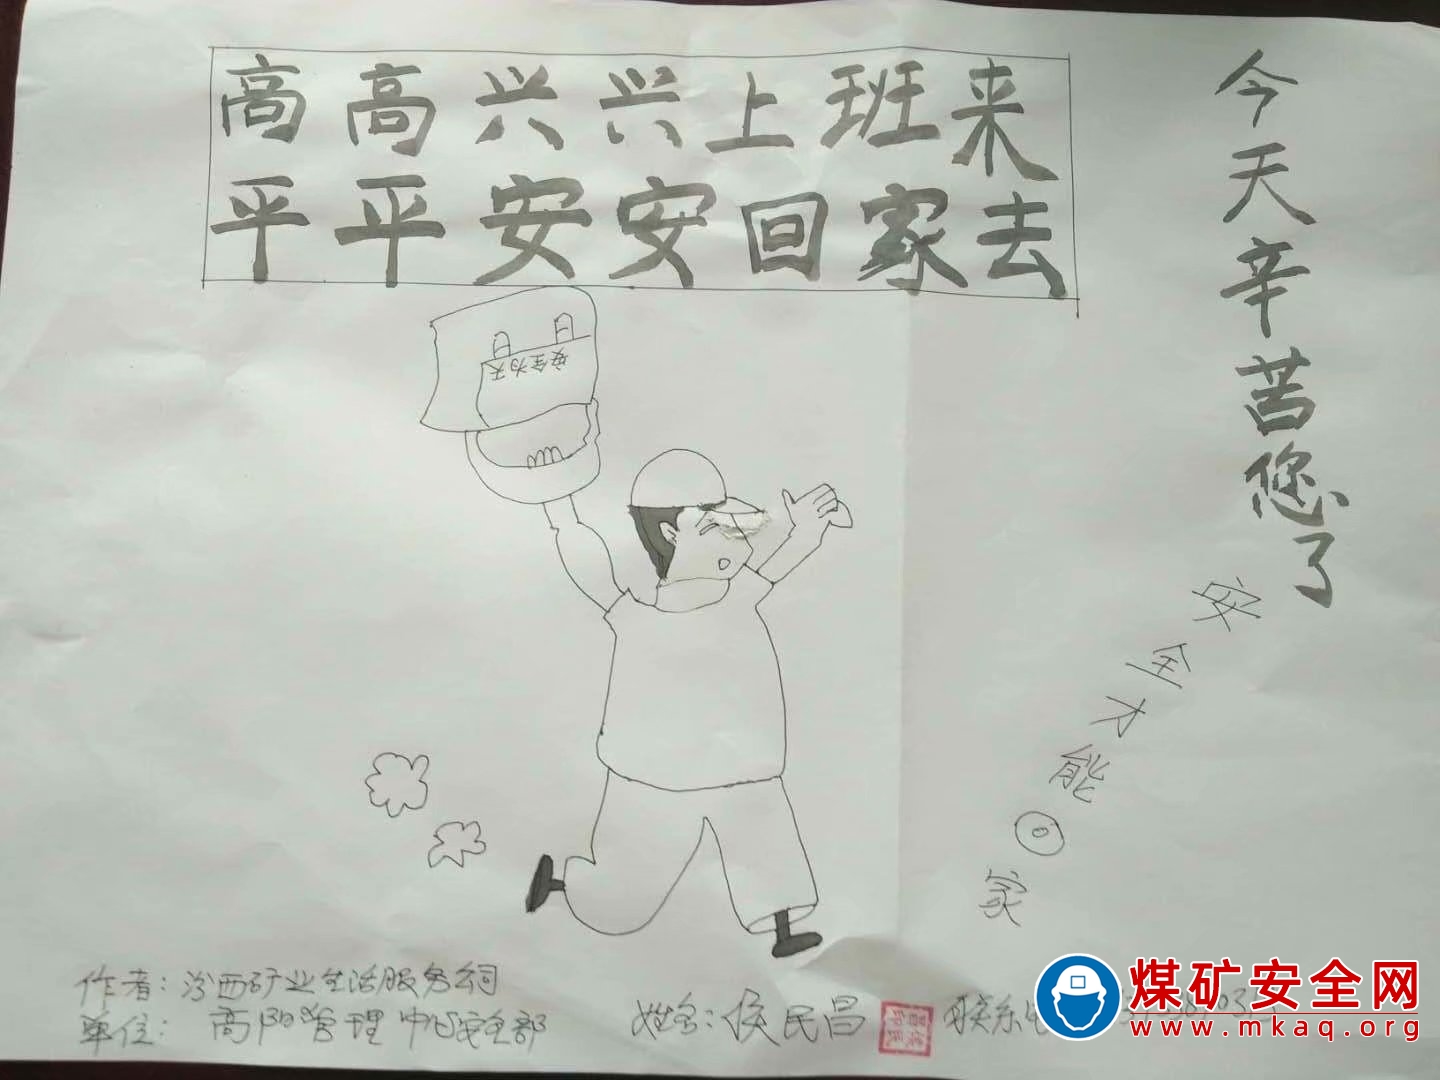 高高兴兴上班来
平平安安回家去
今天辛苦您了
安全为天
安全才能回家
作者:汾西矿业生活服务公司
单位:高阳管理中心安全部
姓名:侯民昌
联系电
煤矿安全网
www.mkaq.org